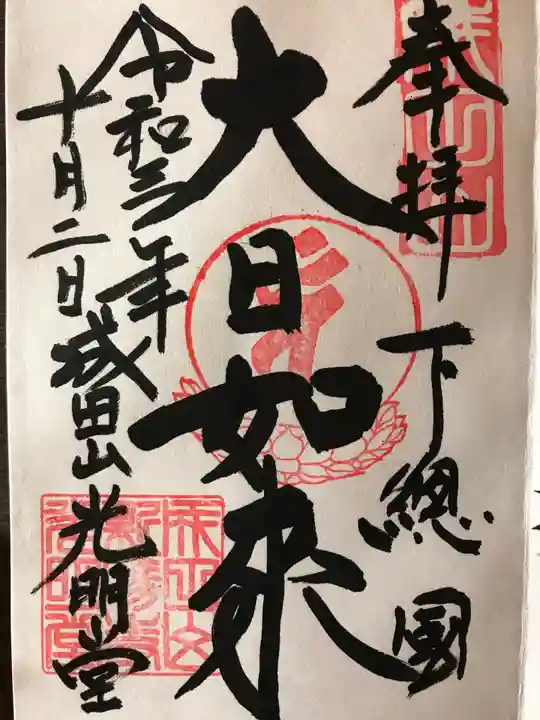 奉拝 下總國
大日如来
令和三年
十月二日 成田山 光明堂